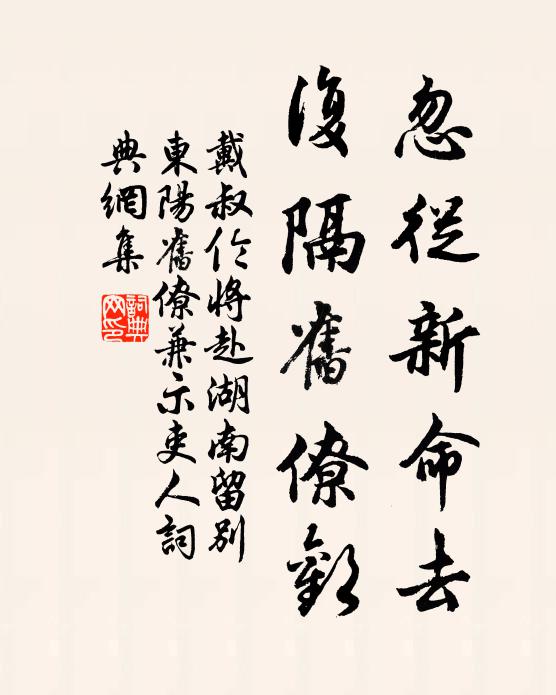 忽從新命去
復隔舊僚歡
戴叔伦將赴湖南留別
東陽舊僚兼示吏人詞
典網集
詞典
网印